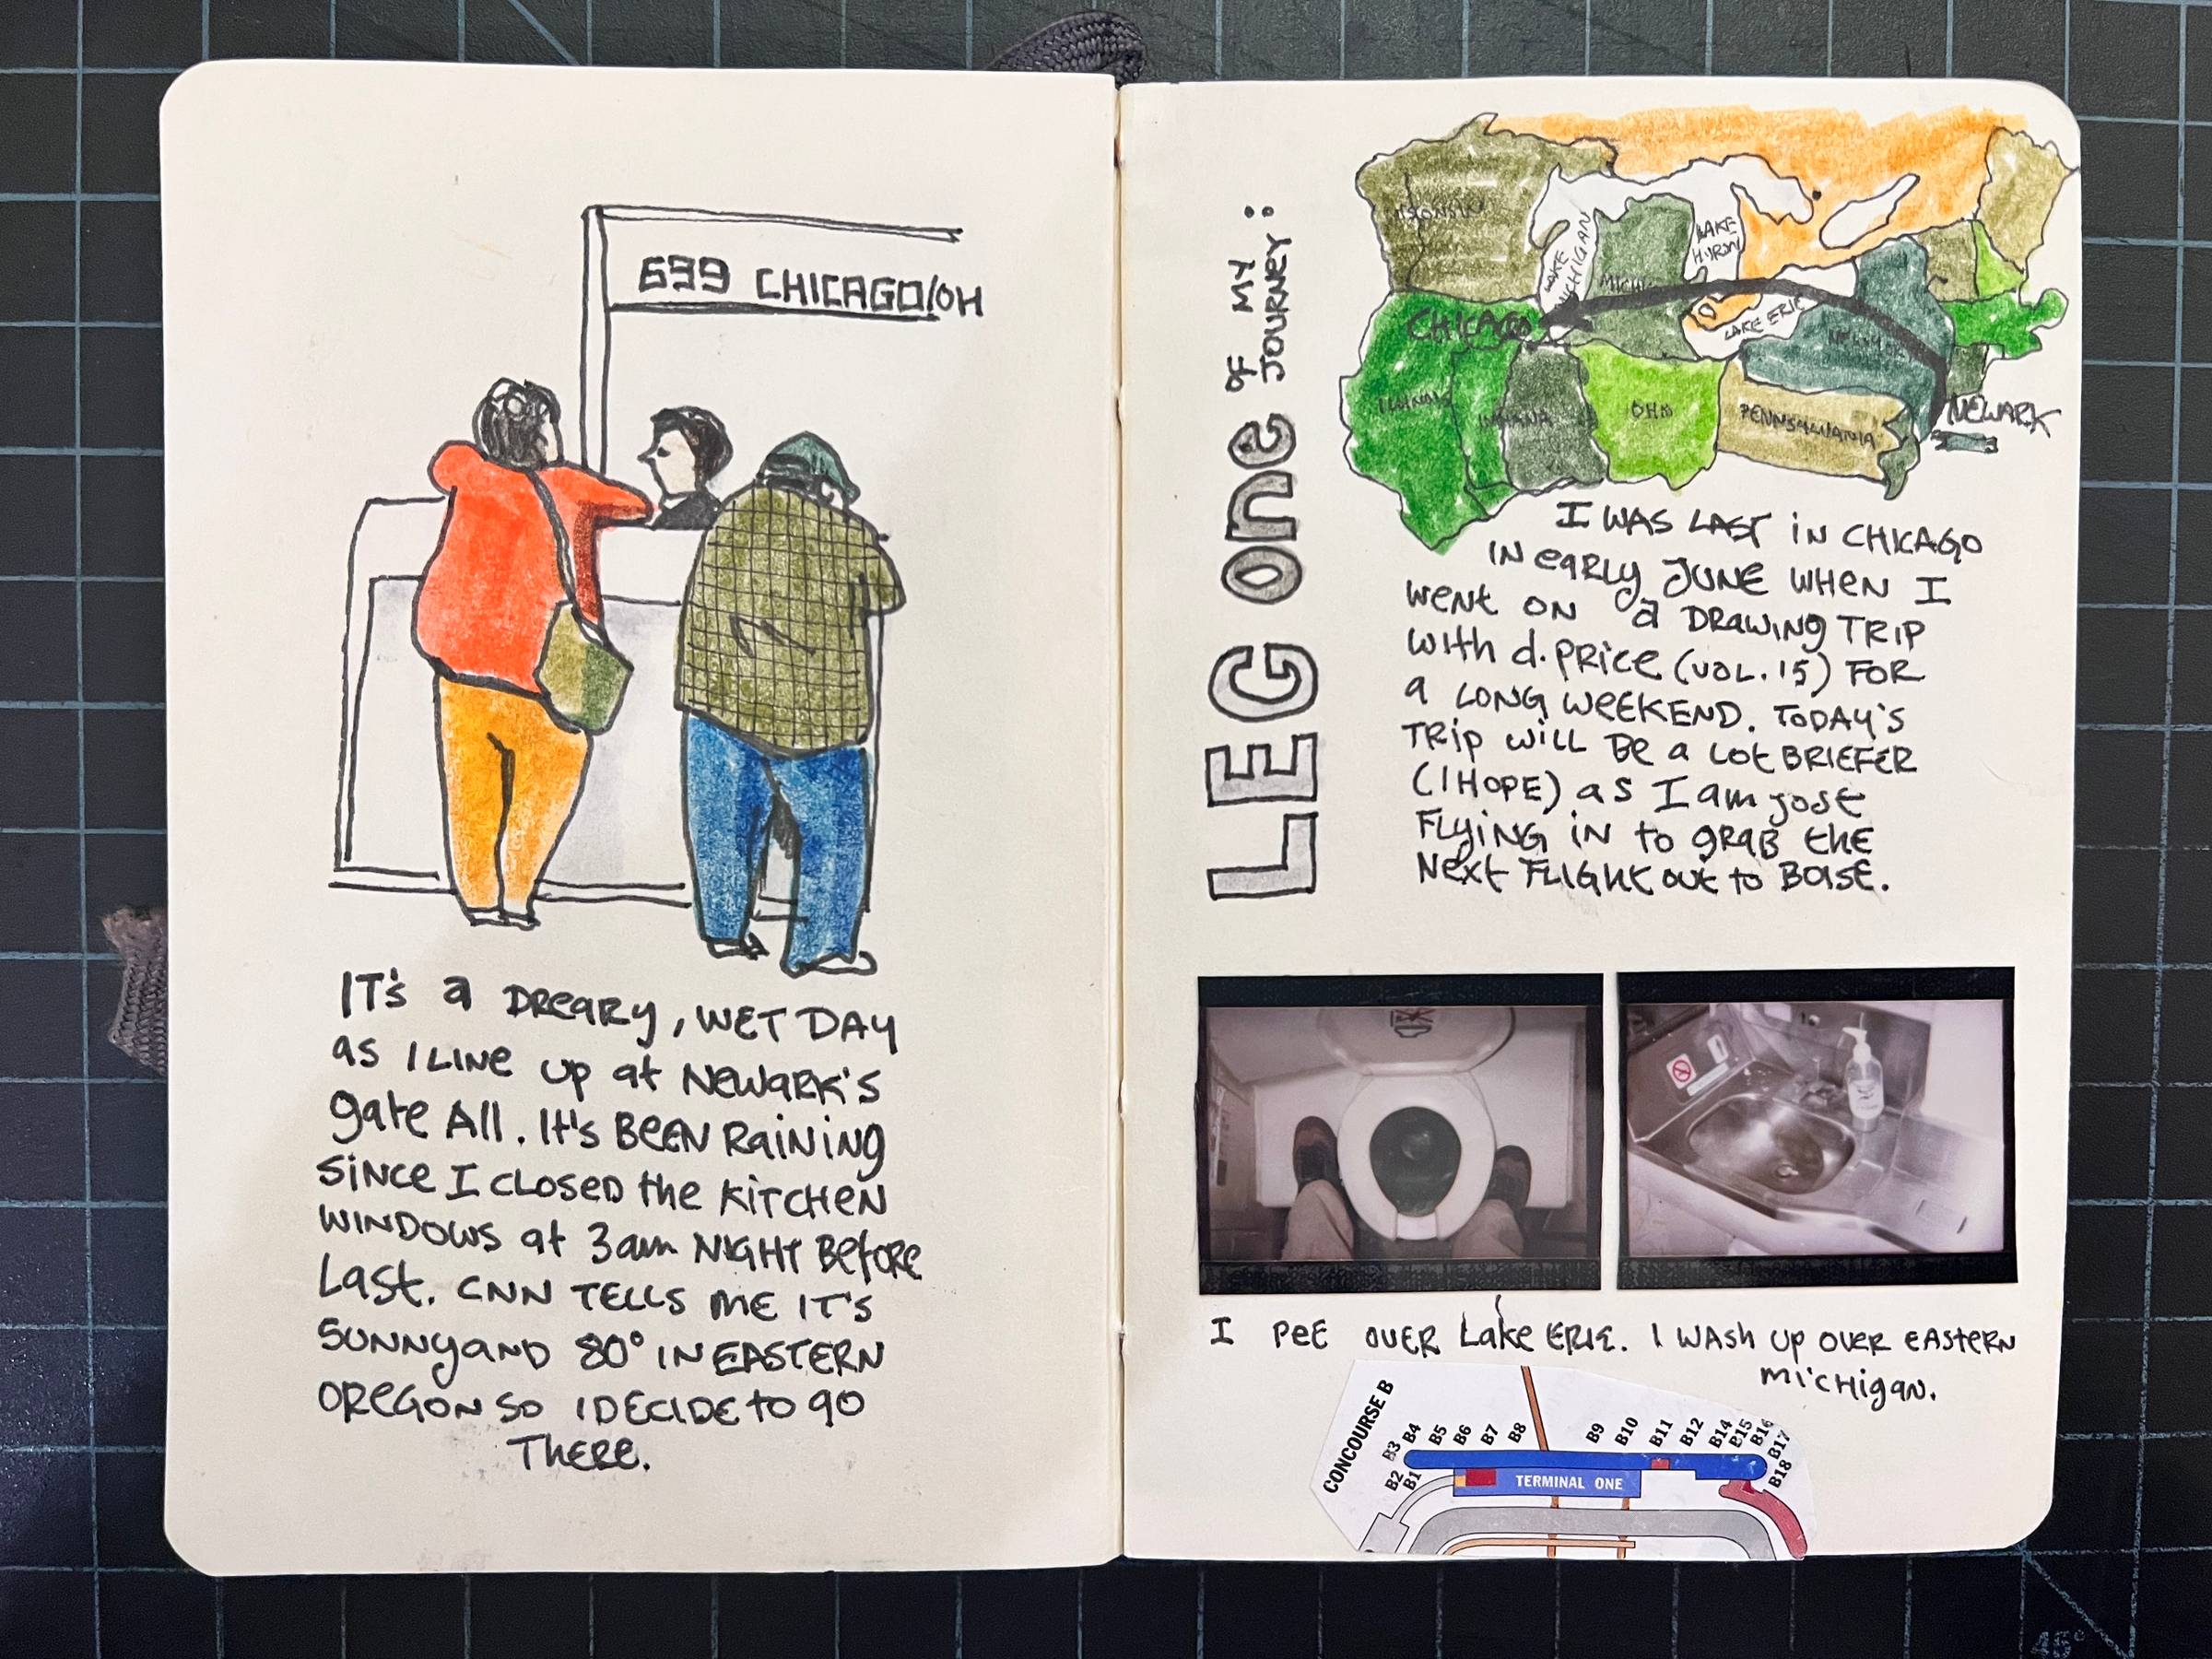 639 CHICAGO/OH
IT'S a DReaRy, WET DAY
as I LINe up at NeWaRK'S
gate A11. It's BeEN RaiNiNg
SiNCe I CLOSeD the KiTCHeN
WINDOWS at 3am NIGHT BefoRe
Last. CNN TELLS ME IT'S
SUNNY aND 80° IN EASTERN
OReGON SO I DECIDE to go
THeRe.
LEG one OF MY
JOURNEY:
WISCONSIN
LAKE
MICHIGAN
LAKE
HURON
MICH
CHICAGO
LAKE ERIE
ILLINOIS
INDIANA
OHIO
PENNSYLVANIA
NEWARK
I WAS LAST iN CHICAGO
IN eaRLy JUNE WHEN I
WeNt ON a DRaWiNg TRIP
WitH d. PRiCe (VOL. 15) FOR
a LONG WeEKEND. TODAY'S
TRip WiLL Be a Lot BRIEFER
(I HOPE) as I am just
FLyiNG iN to gRaB the
NeXt FLIGHt out to BOISE.
I PeE OVER Lake ERIE. I WASH UP OVER eASTERN
MiCHigaN.
CONCOURSE B
B1
B2
B3
B4
B5
B6
B7
B8
B9
B10
B11
B12
B14
B15
B16
B17
B18
TERMINAL ONE
45°